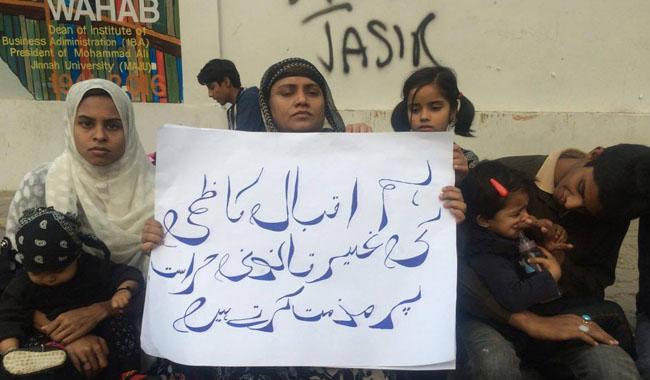 WAHAB
Dean of Institute of
Business Administration (IBA)
President of Mohammad Ali
Jinnah University (MAJU)
JASIR
ہم اقبال کاظمی
کی غیر قانونی حراست
پر مذمت کرتے ہیں